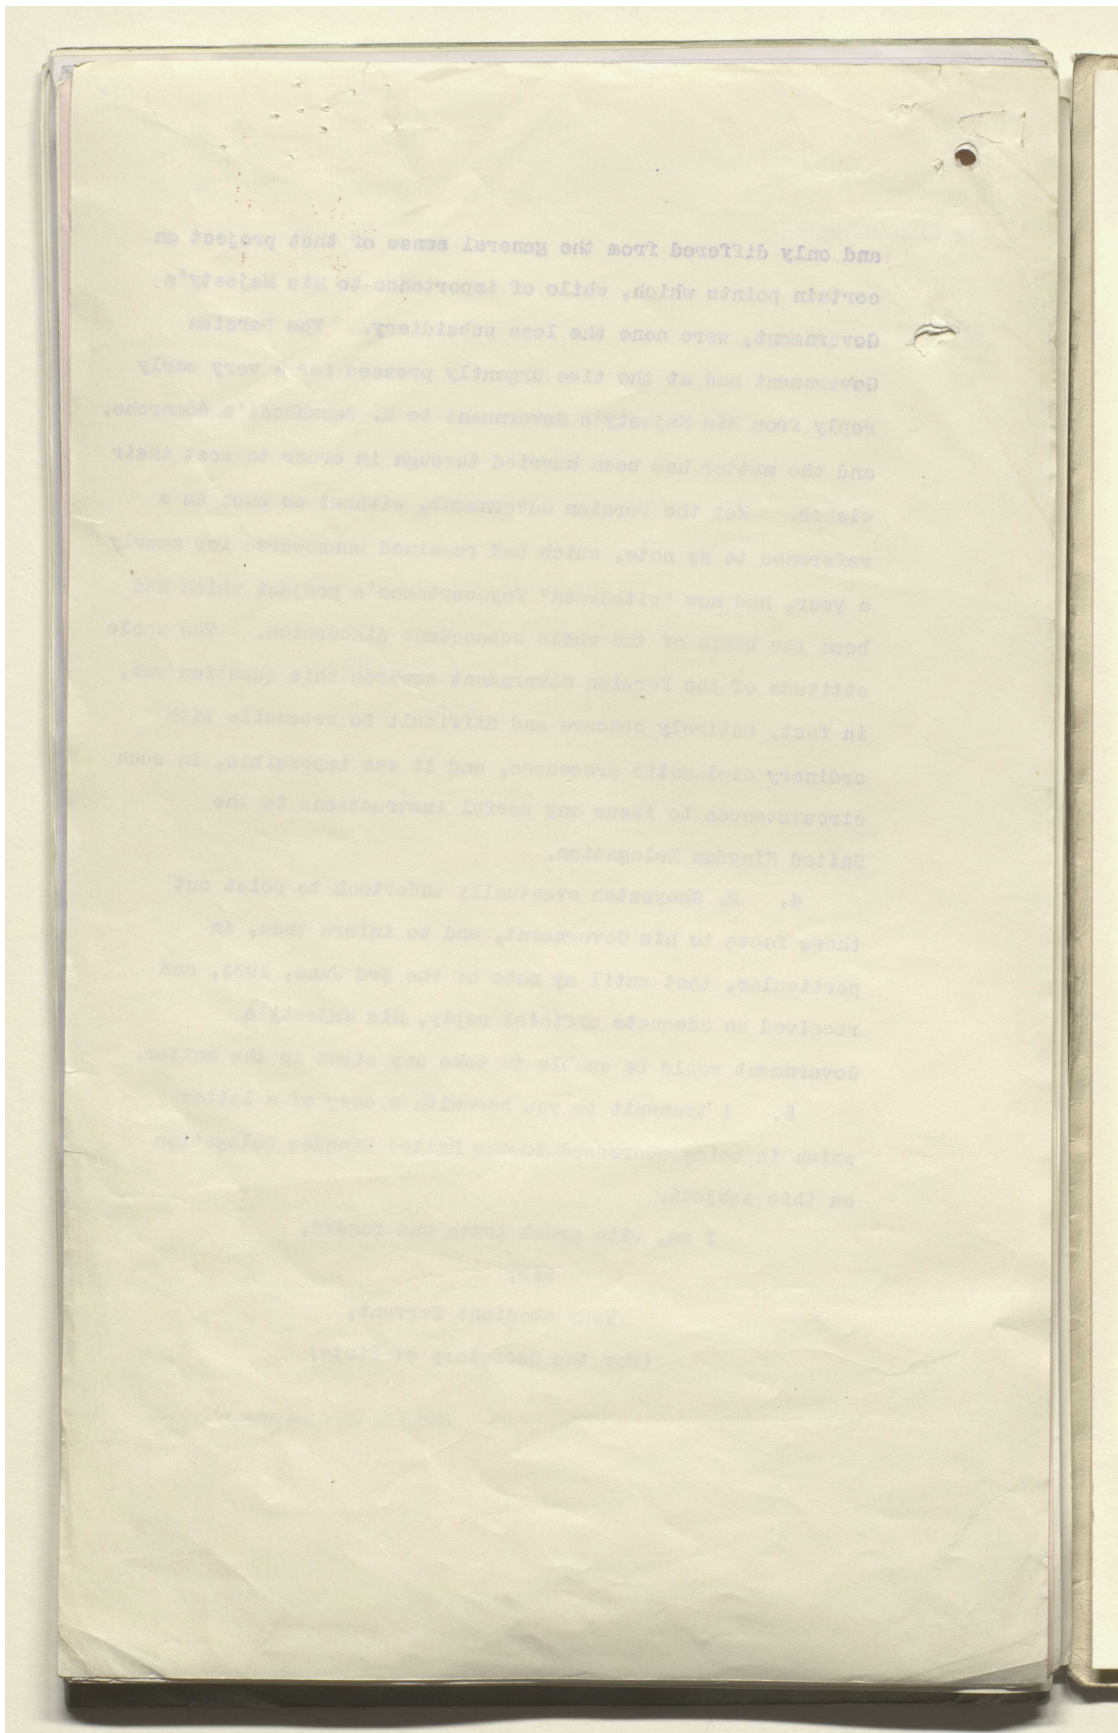 and only differed from the general sense of that project on
certain points which, while of importance to His Majesty's
Government, were none the less subsidiary. The Persian
Government had at the time urgently pressed for a very early
reply from His Majesty's Government to M. Sepahbodi's démarche,
and the matter had been hurried through in order to meet their
wishes. Yet the Persian Government, without so much as a
reference to my note, which had remained unanswered for nearly
a year, had now "withdrawn" Teymourtache's project which had
been the basis of the whole subsequent discussion. The whole
attitude of the Persian Government towards this question was,
in fact, entirely obscure and difficult to reconcile with
ordinary diplomatic procedure, and it was impossible, in such
circumstances to issue any useful instructions to the
United Kingdom Delegation.
4. M. Shayesteh eventually undertook to point out
these facts to his Government, and to inform them, in
particular, that until my note of the 3rd June, had
received an adequate official reply, His Majesty's
Government would be unable to take any steps in the matter.
5. I transmit to you herewith a copy of a letter
which is being addressed to the United Kingdom Delegation
on this subject.
I am, with great truth and regard,
Sir,
Your obedient Servant,
(For the Secretary of State)